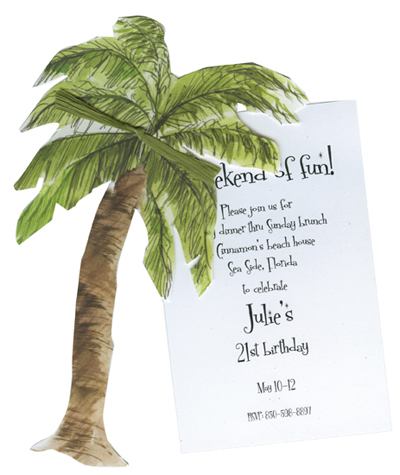 eekend of fun!
Please join us for
dinner thru Sunday brunch
Cinnamon's beach house
Sea Side, Florida
to celebrate
Julie's
21st birthday
May 10-12
RSVP: 850-598-8897